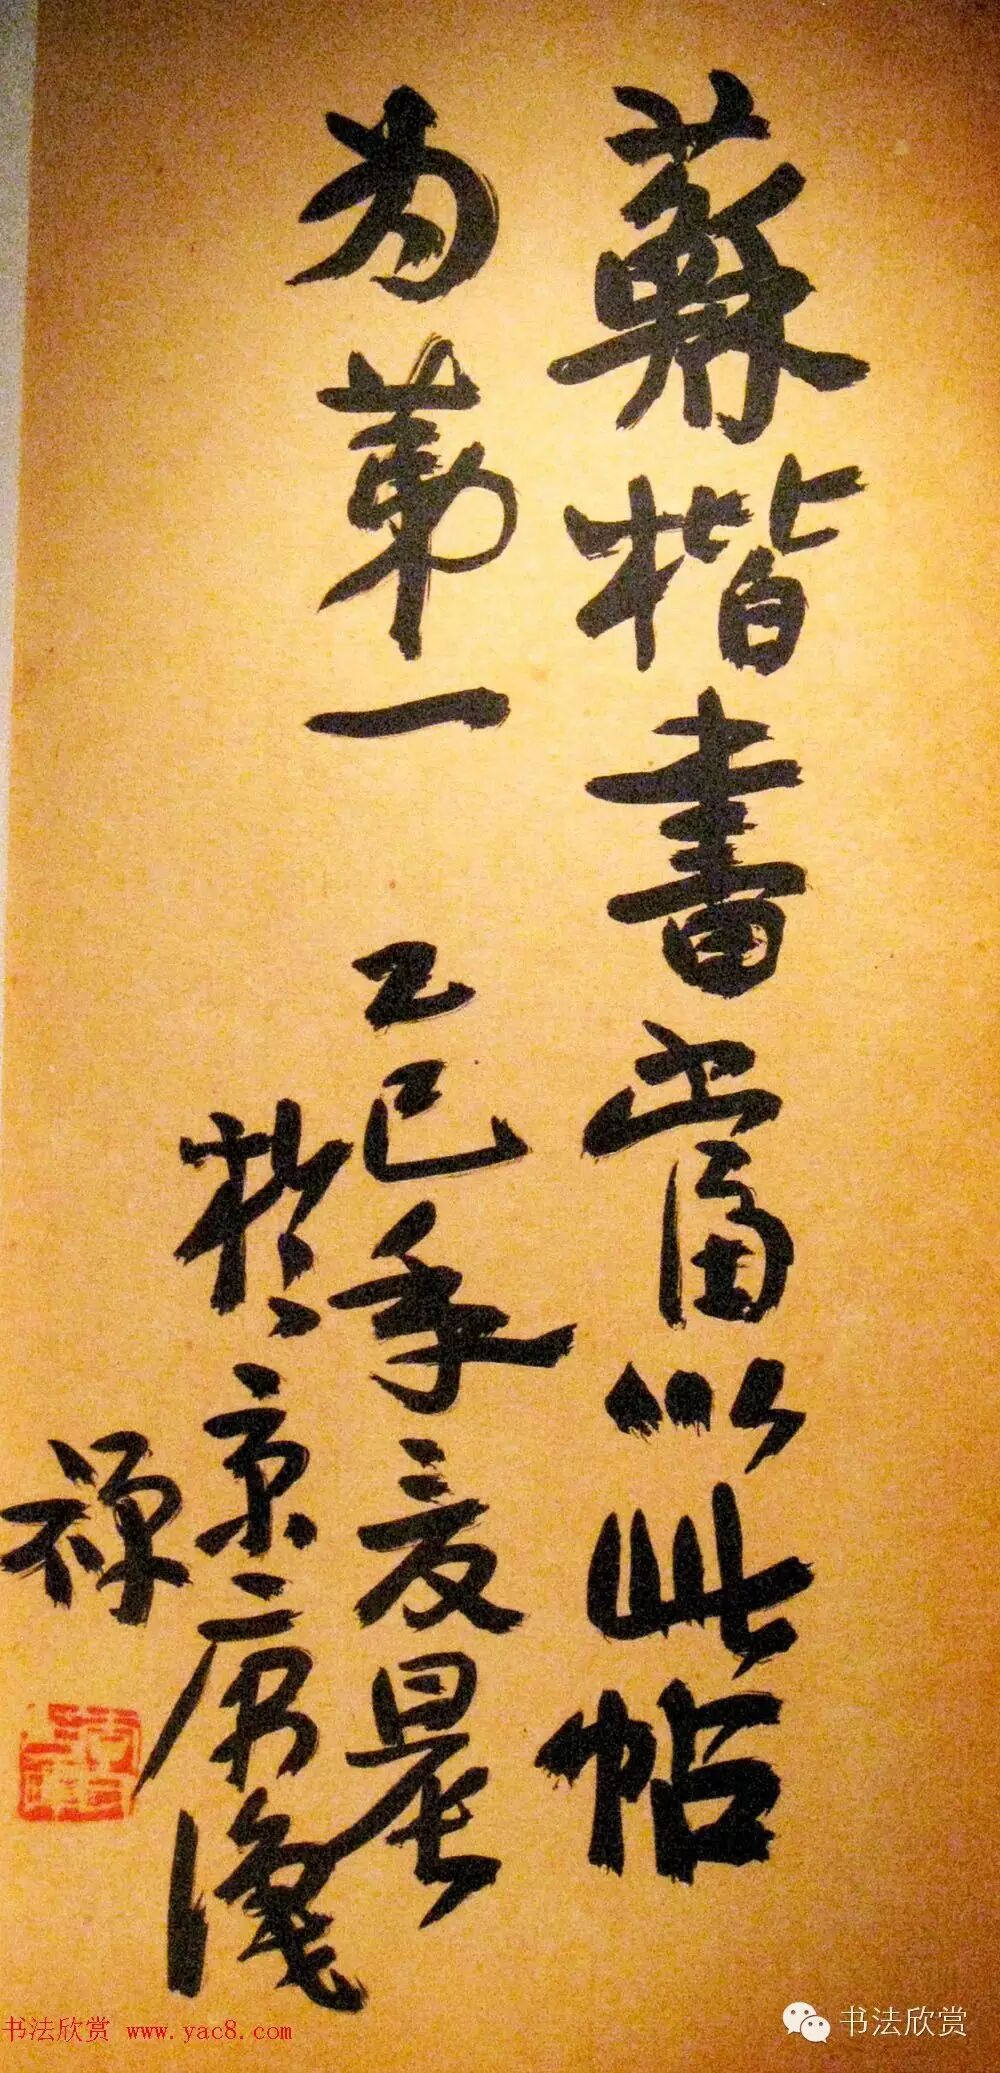 蘇楷書當以此帖
为第一
乙巳年夏晨
於京
禪
书法欣赏 www.yac8.com
书法欣赏